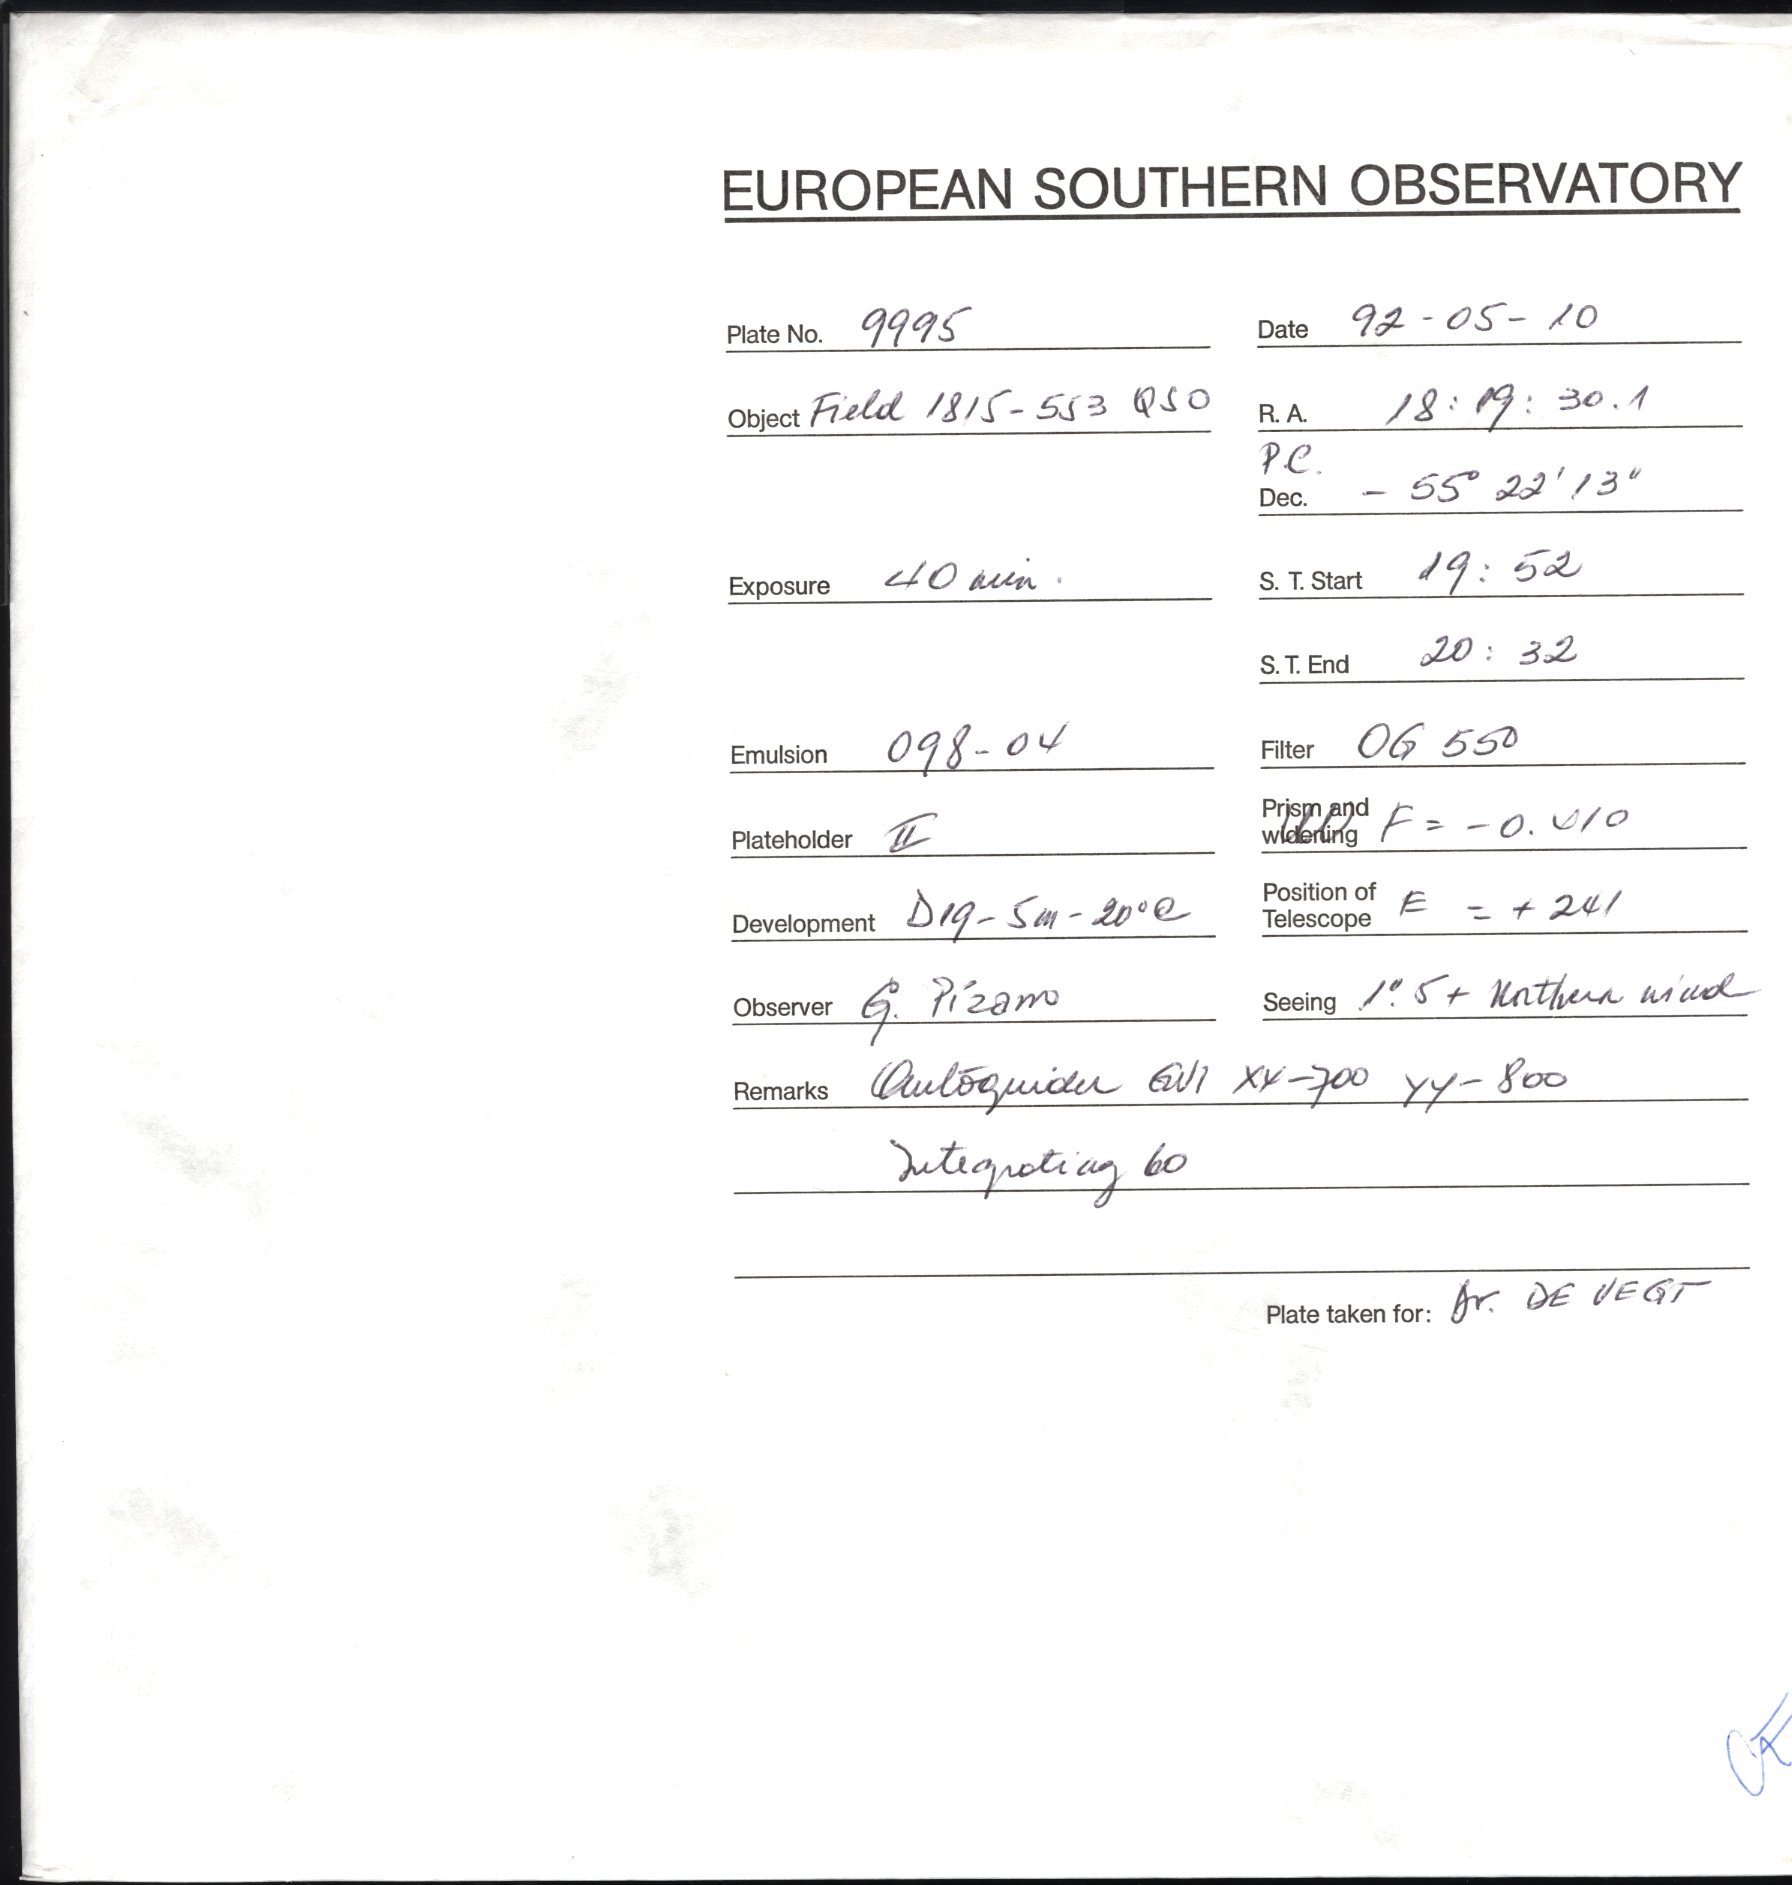 EUROPEAN SOUTHERN OBSERVATORY
Plate No. 9995 Date 92-05-10
Object Field 1815-553 QSO R. A. 18:19:30.1
P.C.
Dec. - 55° 22' 13"
Exposure 40 min. S. T. Start 19:52
S. T. End 20:32
Emulsion 098-04 Filter OG 550
Plateholder II Prism and widening F = -0.410
Development D19-5m-20°C Position of Telescope E = +241
Observer G. Pizarro Seeing 1".5 + Northern wind
Remarks Autoguider XX-700 YY-800
Integrating 60
Plate taken for: Dr. DE VEGT